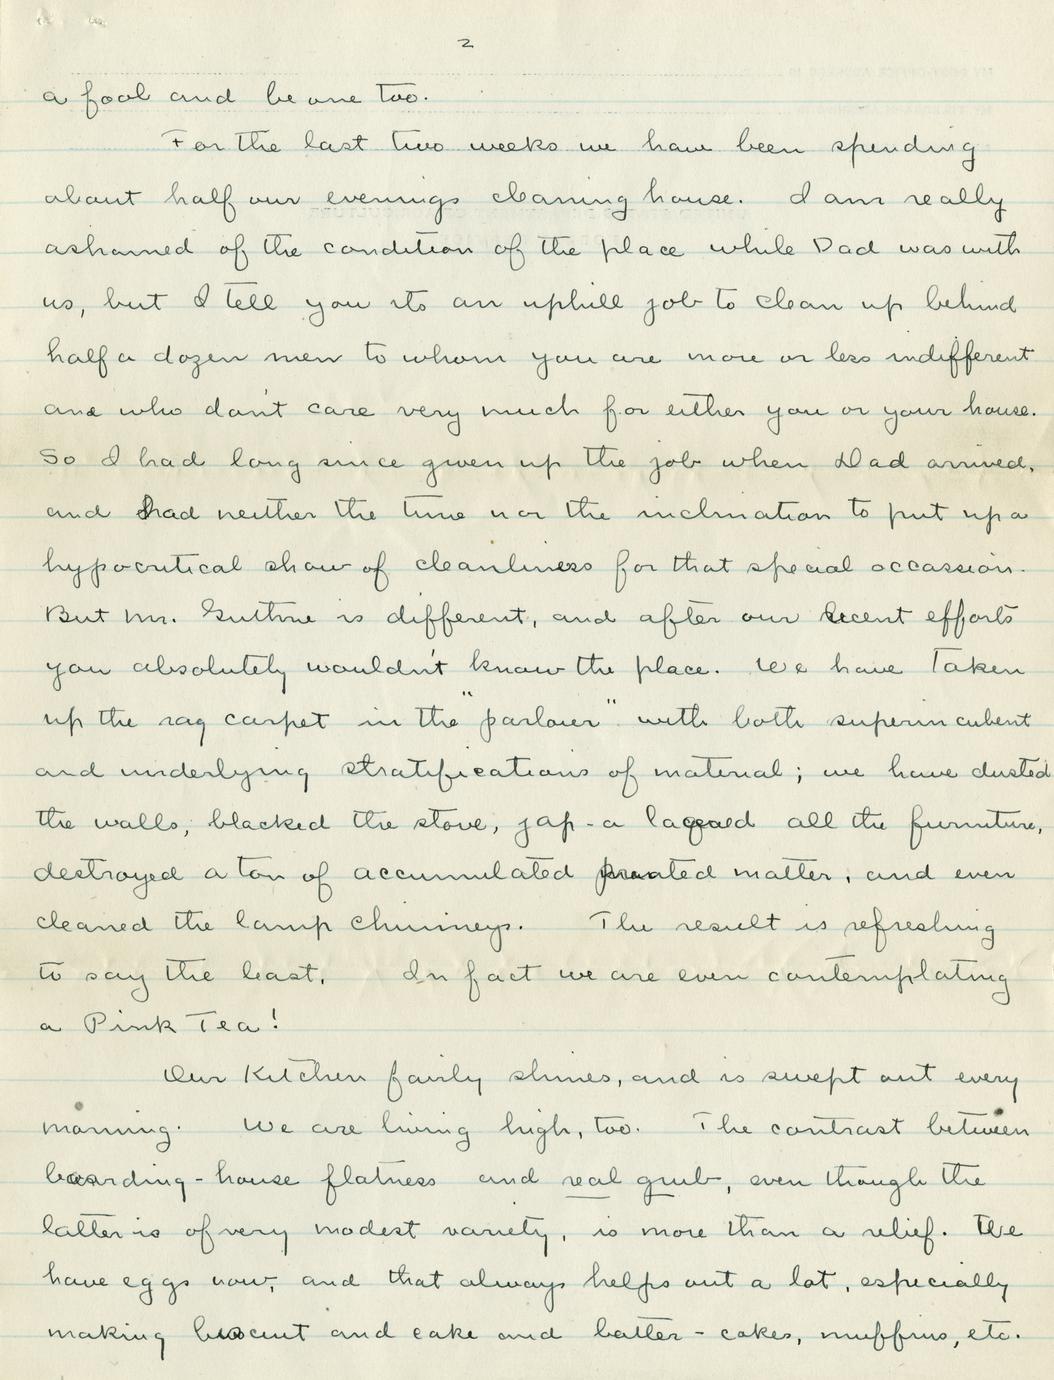 2
a fool and be one too.
For the last two weeks we have been spending
about half our evenings cleaning house. I am really
ashamed of the condition of the place while Dad was with
us, but I tell you its an uphill job to clean up behind
half a dozen men to whom you are more or less indifferent
and who don't care very much for either you or your house.
So I had long since given up the job when Dad arrived,
and had neither the time nor the inclination to put up a
hypocritical show of cleanliness for that special occassion.
But Mr. Guthrie is different, and after our recent efforts
you absolutely wouldn't know the place. We have taken
up the rag carpet in the "parlour" with both superincubent
and underlying stratifications of material; we have dusted
the walls, blacked the stove, jap-a lacqued all the furniture,
destroyed a ton of accumulated printed matter, and even
cleaned the lamp chimneys. The result is refreshing
to say the least. In fact we are even contemplating
a Pink Tea!
Our Kitchen fairly shines, and is swept out every
morning. We are living high, too. The contrast between
boarding-house flatness and real grub, even though the
latter is of very modest variety, is more than a relief. We
have eggs now, and that always helps out a lot, especially
making biscuit and cake and batter-cakes, muffins, etc.